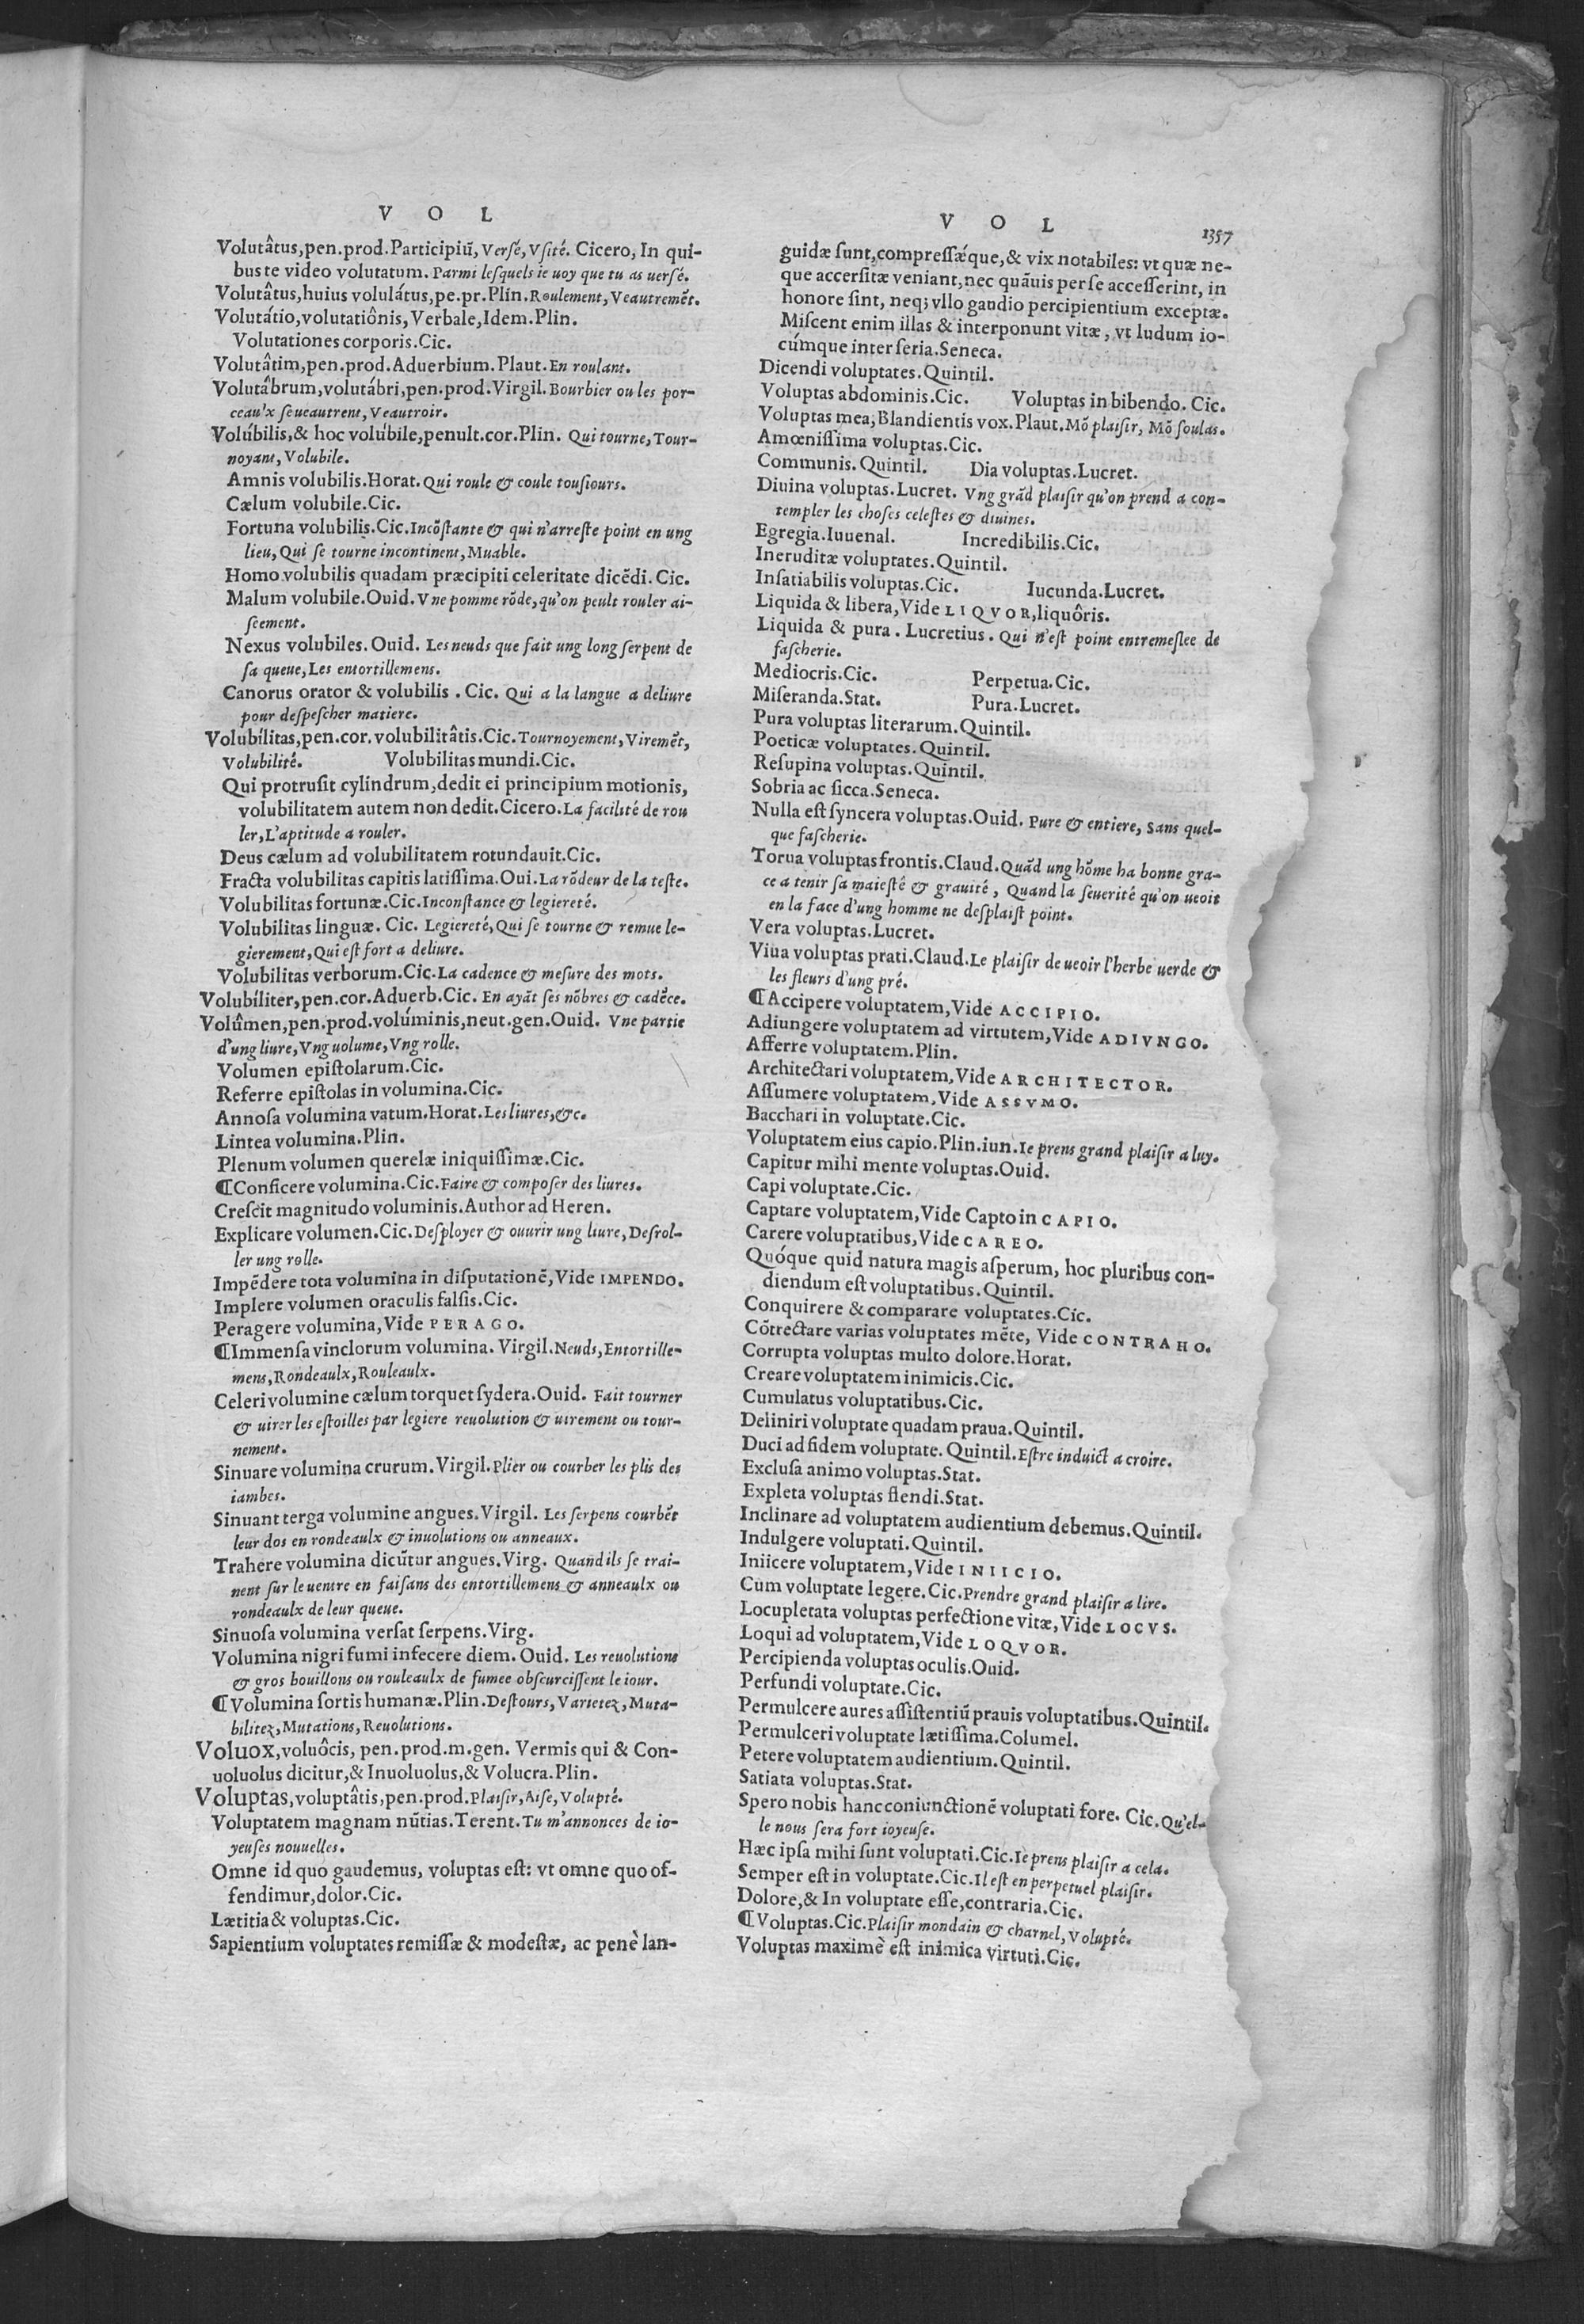 V O L
Volutâtus,pen.prod.Participiũ, Versé, Vsité. Cicero, In qui-
bus te video volutatum. Parmi lesquels ie uoy que tu as uersé.
Volutâtus,huius volulátus,pe.pr.Plin.Roulement, Veautremẽt.
Volutátio,volutatiônis, Verbale, Idem.Plin.
Volutationes corporis.Cic.
Volutâtim,pen.prod.Aduerbium.Plaut.En roulant.
Volutâbrum,volutábri,pen.prod.Virgil.Bourbier ou les por-
ceaulx se ueautrent, Veautroir.
Volúbilis,& hoc volúbile,penult.cor.Plin. Qui tourne, Tour-
noyant, Volubile.
Amnis volubilis.Horat.Qui roule & coule tousiours.
Cælum volubile.Cic.
Fortuna volubilis.Cic.Incõstante & qui n'arreste point en ung
lieu, Qui se tourne incontinent, Muable.
Homo volubilis quadam præcipiti celeritate dicẽdi.Cic.
Malum volubile.Ouid.Vne pomme rõde, qu'on peult rouler ai-
seement.
Nexus volubiles.Ouid. Les neuds que fait ung long serpent de
sa queue, Les entortillemens.
Canorus orator & volubilis . Cic. Qui a la langue a deliure
pour despescher matiere.
Volubílitas,pen.cor.volubilitâtis.Cic.Tournoyement, Viremẽt,
Volubilité. Volubilitas mundi.Cic.
Qui protrusit cylindrum,dedit ei principium motionis,
volubilitatem autem non dedit.Cicero.La facilité de rou
ler, L'aptitude a rouler.
Deus cælum ad volubilitatem rotundauit.Cic.
Fracta volubilitas capitis latissima.Oui.La rõdeur de la teste.
Volubilitas fortunæ.Cic.Inconstance & legiereté.
Volubilitas linguæ. Cic. Legiereté, Qui se tourne & remue le-
gierement, Qui est fort a deliure.
Volubilitas verborum.Cic.La cadence & mesure des mots.
Volubíliter,pen.cor.Aduerb.Cic. En ayãt ses nõbres & cadẽce.
Volûmen,pen.prod.volúminis,neut.gen.Ouid. Vne partie
d'ung liure, Vng uolume, Vng rolle.
Volumen epistolarum.Cic.
Referre epistolas in volumina.Cic.
Annosa volumina vatum.Horat.Les liures,&c.
Lintea volumina.Plin.
Plenum volumen querelæ iniquissimæ.Cic.
¶Conficere volumina.Cic.Faire & composer des liures.
Crescit magnitudo voluminis.Author ad Heren.
Explicare volumen.Cic.Desployer & ouurir ung liure, Desrol-
ler ung rolle.
Impẽdere tota volumina in disputationẽ, Vide IMPENDO.
Implere volumen oraculis falsis.Cic.
Peragere volumina, Vide PERAGO.
¶Immensa vinclorum volumina. Virgil.Neuds, Entortille-
mens, Rondeaulx, Rouleaulx.
Celeri volumine cælum torquet sydera.Ouid. Fait tourner
& uirer les estoilles par legiere reuolution & uirement ou tour-
nement.
Sinuare volumina crurum.Virgil.Plier ou courber les plis des
iambes.
Sinuant terga volumine angues.Virgil. Les serpens courbẽt
leur dos en rondeaulx & inuolutions ou anneaux.
Trahere volumina dicũtur angues.Virg. Quand ils se trai-
nent sur le uentre en faisans des entortillemens & anneaulx ou
rondeaulx de leur queue.
Sinuosa volumina versat serpens.Virg.
Volumina nigri fumi infecere diem. Ouid. Les reuolutions
& gros bouillons ou rouleaulx de fumee obscurcissent le iour.
¶Volumina sortis humanæ.Plin.Destours, Varietez, Muta-
bilitez, Mutations, Reuolutions.
Voluox,voluôcis, pen.prod.m.gen. Vermis qui & Con-
uoluolus dicitur,& Inuoluolus,& Volucra.Plin.
Voluptas,voluptâtis,pen.prod.Plaisir, Aise, Volupté.
Voluptatem magnam nũtias.Terent.Tu m'annonces de io-
yeuses nouuelles.
Omne id quo gaudemus, voluptas est: vt omne quo of-
fendimur,dolor.Cic.
Lætitia & voluptas.Cic.
Sapientium voluptates remissæ & modestæ, ac penè lan-
V O L 1357
guidæ sunt,compressǽque,& vix notabiles: vt quæ ne-
que accersitæ veniant,nec quãuis per se accesserint, in
honore sint, neq; vllo gaudio percipientium exceptæ.
Miscent enim illas & interponunt vitæ, vt ludum io-
cúmque inter seria.Seneca.
Dicendi voluptates.Quintil.
Voluptas abdominis.Cic. Voluptas in bibendo. Cic.
Voluptas mea, Blandientis vox.Plaut.Mõ plaisir, Mõ soulas.
Amœnissima voluptas.Cic.
Communis.Quintil. Dia voluptas.Lucret.
Diuina voluptas.Lucret. Vng grãd plaisir qu'on prend a con-
templer les choses celestes & diuines.
Egregia.Iuuenal. Incredibilis.Cic.
Ineruditæ voluptates.Quintil.
Insatiabilis voluptas.Cic. Iucunda.Lucret.
Liquida & libera, Vide LIQVOR,liquôris.
Liquida & pura . Lucretius . Qui n'est point entremeslee de
fascherie.
Mediocris.Cic. Perpetua.Cic.
Miseranda.Stat. Pura.Lucret.
Pura voluptas literarum.Quintil.
Poeticæ voluptates.Quintil.
Resupina voluptas.Quintil.
Sobria ac sicca.Seneca.
Nulla est syncera voluptas.Ouid. Pure & entiere, Sans quel-
que fascherie.
Torua voluptas frontis.Claud.Quãd ung hõme ha bonne gra-
ce a tenir sa maiesté & grauité, Quand la seuerité qu'on ueoit
en la face d'ung homme ne desplaist point.
Vera voluptas.Lucret.
Viua voluptas prati.Claud.Le plaisir de ueoir l'herbe uerde &
les fleurs d'ung pré.
¶Accipere voluptatem, Vide ACCIPIO.
Adiungere voluptatem ad virtutem, Vide ADIVNGO.
Afferre voluptatem.Plin.
Architectari voluptatem, Vide ARCHITECTOR.
Assumere voluptatem, Vide ASSVMO.
Bacchari in voluptate.Cic.
Voluptatem eius capio.Plin.iun.Ie prens grand plaisir a luy.
Capitur mihi mente voluptas.Ouid.
Capi voluptate.Cic.
Captare voluptatem, Vide Capto in CAPIO.
Carere voluptatibus, Vide CAREO.
Quóque quid natura magis asperum, hoc pluribus con-
diendum est voluptatibus.Quintil.
Conquirere & comparare voluptates.Cic.
Cõtrectare varias voluptates mẽte, Vide CONTRAHO.
Corrupta voluptas multo dolore.Horat.
Creare voluptatem inimicis.Cic.
Cumulatus voluptatibus.Cic.
Deliniri voluptate quadam praua.Quintil.
Duci ad fidem voluptate. Quintil.Estre induict a croire.
Exclusa animo voluptas.Stat.
Expleta voluptas flendi.Stat.
Inclinare ad voluptatem audientium debemus.Quintil.
Indulgere voluptati.Quintil.
Iniicere voluptatem, Vide INIICIO.
Cum voluptate legere.Cic.Prendre grand plaisir a lire.
Locupletata voluptas perfectione vitæ, Vide LOCVS.
Loqui ad voluptatem, Vide LOQVOR.
Percipienda voluptas oculis.Ouid.
Perfundi voluptate.Cic.
Permulcere aures assistentiũ prauis voluptatibus.Quintil.
Permulceri voluptate lætissima.Columel.
Petere voluptatem audientium.Quintil.
Satiata voluptas.Stat.
Spero nobis hanc coniunctionẽ voluptati fore. Cic.Qu'el-
le nous sera fort ioyeuse.
Hæc ipsa mihi sunt voluptati.Cic.Ie prens plaisir a cela.
Semper est in voluptate.Cic.Il est en perpetuel plaisir.
Dolore,& In voluptate esse,contraria.Cic.
¶Voluptas.Cic.Plaisir mondain & charnel, Volupté.
Voluptas maximè est inimica virtuti.Cic.